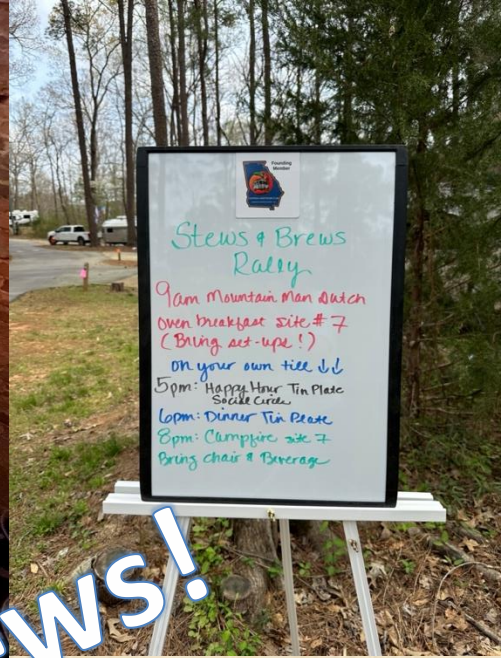 Founding
Member
Stews & Brews
Rally
9am Mountain Man Dutch
Oven breakfast site #7
(Bring set-ups!)
on your own till ↓↓
5pm: Happy Hour Tin Plate
Social Circle
6pm: Dinner Tin Plate
8pm: Campfire site 7
Bring chair & Beverage
ews!